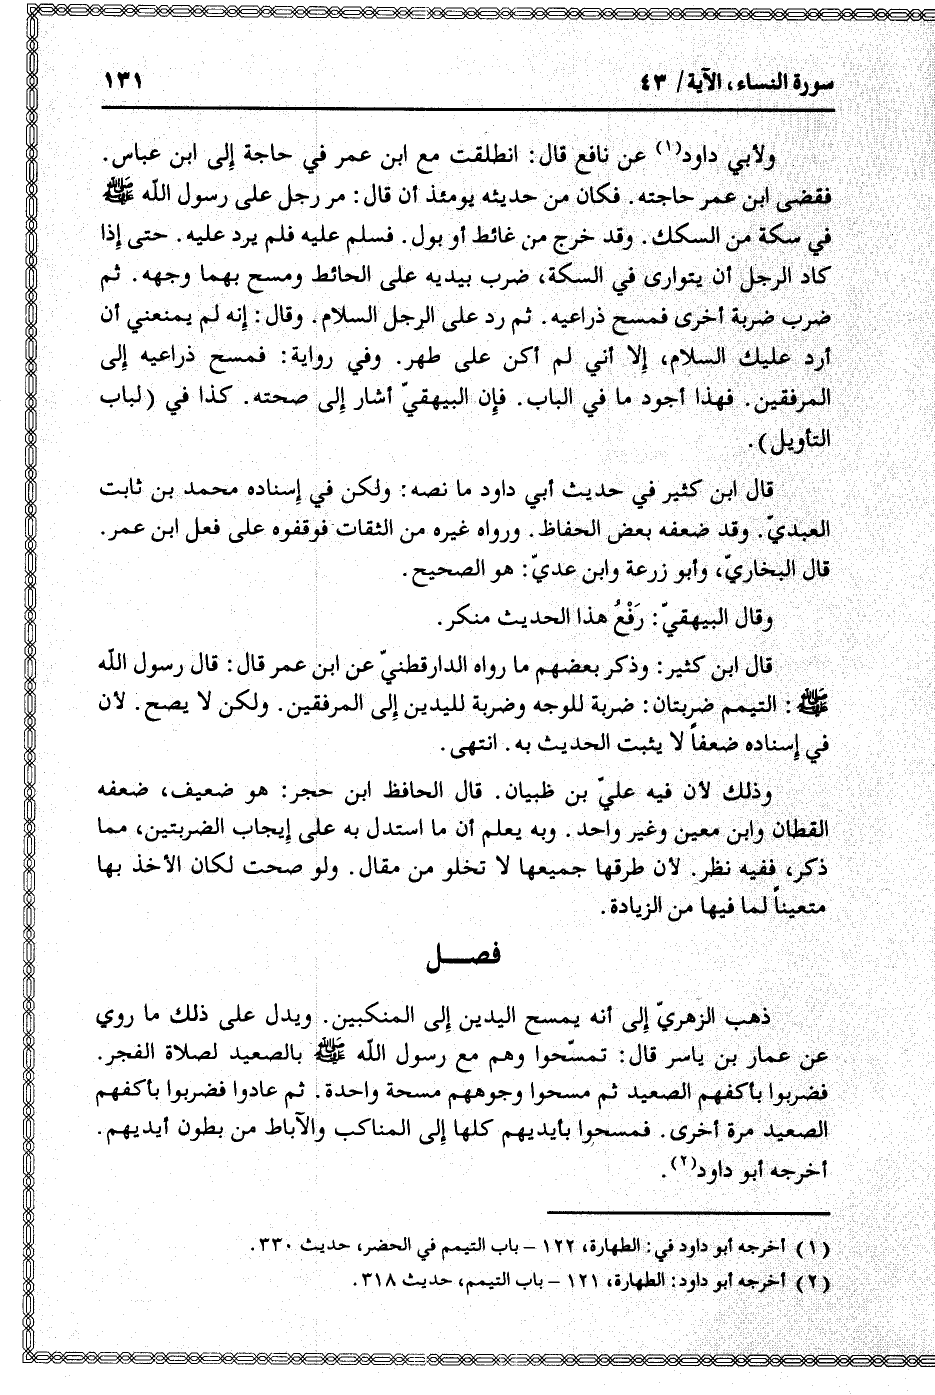 سورة النساء، الآية/ ٤٣
١٣١
ولأبي داود(١) عن نافع قال: انطلقت مع ابن عمر في حاجة إلى ابن عباس.
فقضى ابن عمر حاجته. فكان من حديثه يومئذ أن قال: مر رجل على رسول الله ﷺ
في سكة من السكك. وقد خرج من غائط أو بول. فسلم عليه فلم يرد عليه. حتى إذا
كاد الرجل أن يتوارى في السكة، ضرب بيديه على الحائط ومسح بهما وجهه. ثم
ضرب ضربة أخرى فمسح ذراعيه. ثم رد على الرجل السلام. وقال: إنه لم يمنعني أن
أرد عليك السلام، إلا أني لم أكن على طهر. وفي رواية: فمسح ذراعيه إلى
المرفقين. فهذا أجود ما في الباب. فإن البيهقيّ أشار إلى صحته. كذا في (لباب
التأويل).
قال ابن كثير في حديث أبي داود ما نصه: ولكن في إسناده محمد بن ثابت
العبديّ. وقد ضعفه بعض الحفاظ. ورواه غيره من الثقات فوقفوه على فعل ابن عمر.
قال البخاريّ، وأبو زرعة وابن عديّ: هو الصحيح.
وقال البيهقيّ: رَفْعُ هذا الحديث منكر.
قال ابن كثير: وذكر بعضهم ما رواه الدارقطنيّ عن ابن عمر قال: قال رسول الله
ﷺ: التيمم ضربتان: ضربة للوجه وضربة لليدين إلى المرفقين. ولكن لا يصح. لأن
في إسناده ضعفاً لا يثبت الحديث به. انتهى.
وذلك لأن فيه عليّ بن ظبيان. قال الحافظ ابن حجر: هو ضعيف، ضعفه
القطان وابن معين وغير واحد. وبه يعلم أن ما استدل به على إيجاب الضربتين، مما
ذكر، ففيه نظر. لأن طرقها جميعها لا تخلو من مقال. ولو صحت لكان الأخذ بها
متعيناً لما فيها من الزيادة.
فصـــل
ذهب الزهريّ إلى أنه يمسح اليدين إلى المنكبين. ويدل على ذلك ما روي
عن عمار بن ياسر قال: تمسّحوا وهم مع رسول الله ﷺ بالصعيد لصلاة الفجر.
فضربوا بأكفهم الصعيد ثم مسحوا وجوههم مسحة واحدة. ثم عادوا فضربوا بأكفهم
الصعيد مرة أخرى. فمسحوا بأيديهم كلها إلى المناكب والآباط من بطون أيديهم.
أخرجه أبو داود(٢).
(١) أخرجه أبو داود في: الطهارة، ١٢٢ – باب التيمم في الحضر، حديث ٣٣٠.
(٢) أخرجه أبو داود: الطهارة، ١٢١ – باب التيمم، حديث ٣١٨.